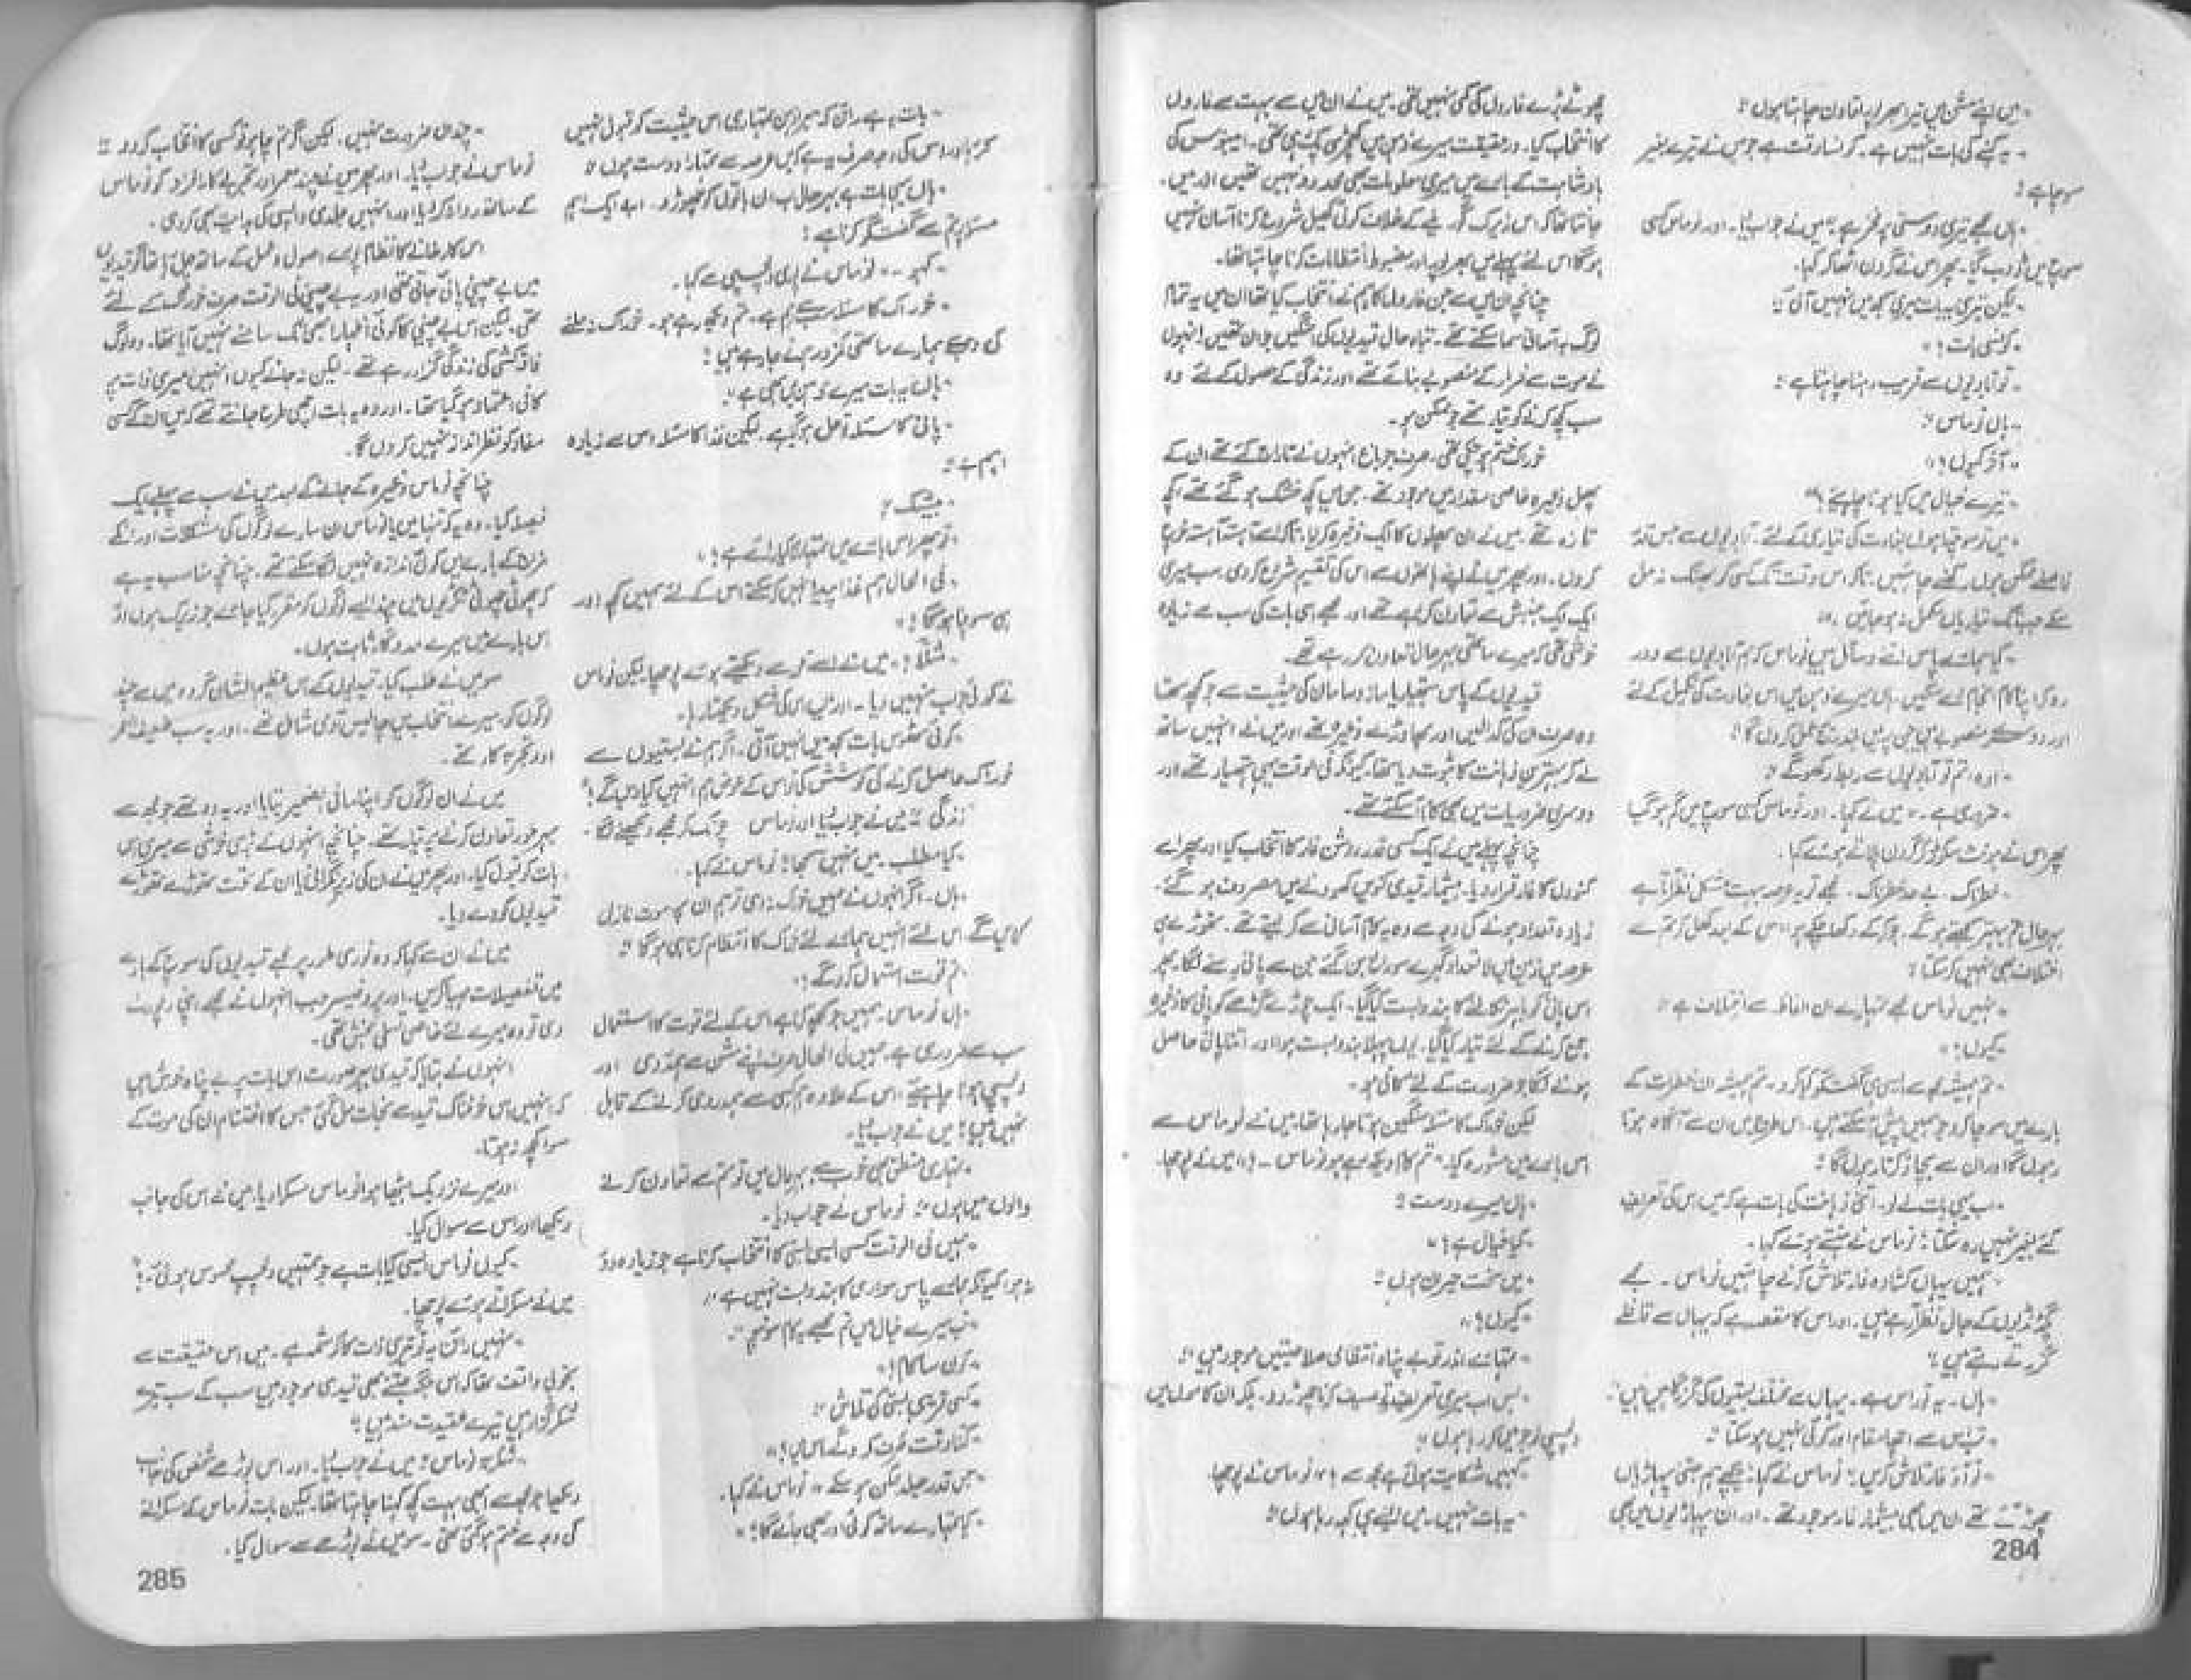 ۔ میں اپنے مشن میں تیرا بھرپور تعاون چاہتا ہوں ؛
۔ یہ کہنے کی بات نہیں ہے۔ کونسا وقت ہے جو میں نے تیرے بغیر
سوچا ہے ؛
۔ ہاں مجھے تیری دوستی پر فخر ہے ؛ میں نے جواب دیا۔ اور نوماس کسی
سوچ میں ڈوب گیا۔ پھر اس نے گردن اٹھا کر کہا۔
۔ لیکن تیری یہ بات میری سمجھ میں نہیں آئی ؛
۔ کونسی بات ؟
۔ تو آبادیوں سے قریب رہنا چاہتا ہے ؛
۔ ہاں نوماس ؛
۔ آخر کیوں ؟
۔ تیرے خیال میں کیا ہونا چاہیئے ؟
۔ میں تو سوچتا ہوں بغاوت کی تیاری کے لئے۔ آبادیوں سے جس قدر
فاصلے ممکن ہوں رکھے جائیں۔ تاکہ اس وقت تک کسی کو بھنک نہ مل
سکے جب تک تیاریاں مکمل نہ ہو جائیں ؛
۔ کیا ہمارے پاس اتنے وسائل ہیں نوماس کہ ہم آبادیوں سے دور
رہ کر اپنا کام انجام دے سکیں۔ ہاں میرے ذہن میں اس بغاوت کی تکمیل کے لئے
اور دوسرے منصوبے بھی ہیں جن پر میں بعد میں عمل کروں گا ؛
۔ اوہ، تم تو آبادیوں سے ربط رکھو گے ؛
۔ ضروری ہے۔ میں نے کہا۔ اور نوماس کسی سوچ میں گم ہو گیا
پھر اس نے ہونٹ سکوڑ کر گردن ہلاتے ہوئے کہا۔
۔ خطرناک۔ بے حد خطرناک۔ مجھے تو یہ عرصہ بہت مشکل نظر آتا ہے
بہرحال تم بہتر سمجھتے ہو گے۔ جو کر کے دکھا چکے ہو اس کے بعد کھل کر تم سے
اختلاف بھی نہیں کر سکتا ؛
۔ نہیں نوماس مجھے تمہارے ان الفاظ سے اختلاف ہے ؛
۔ کیوں ؟
۔ تم ہمیشہ مجھ سے ایسی ہی گفتگو کیا کرو۔ تم ہمیشہ ان خطرات کے
بارے میں سوچا کرو جو ہمیں پیش آ سکتے ہیں۔ اس طرح میں ان سے آگاہ ہوتا
رہوں گا اور ان سے بچاؤ کرتا رہوں گا ؛
۔ اب یہی بات لے لو۔ اتنی ذہانت کی بات ہے کہ میں اس کی تعریف
کئے بغیر نہیں رہ سکتا ؛ نوماس نے ہنستے ہوئے کہا۔
۔ ہمیں یہاں کشادہ غار تلاش کرنے چاہئیں نوماس۔ مجھے
پگڈنڈیوں کے جال نظر آ رہے ہیں۔ اور اس کا مقصد ہے کہ یہاں سے قافلے
گزرتے رہتے ہیں ؛
۔ ہاں۔ یہ تو راس ہے۔ یہاں سے مختلف بستیوں کی گزر گاہیں ہیں ؛
۔ تب اس سے اچھا مقام اور کوئی نہیں ہو سکتا ؛
۔ تو آؤ غار تلاش کریں ؛ نوماس نے کہا ؛ پیچھے ہم جتنی پہاڑیاں
چھوڑ آئے تھے ان میں بھی بیشتر غار موجود تھے۔ اور ان پہاڑیوں میں بھی
284
چھوٹے بڑے غاروں کی کمی نہیں تھی۔ میں نے ان میں سے بہت سے غاروں
کا انتخاب کیا۔ درحقیقت میرے ذہن میں کھچڑی پک رہی تھی۔
بادشاہت کے بارے میں میری معلومات بھی محدود نہیں تھیں اور میں۔
جانتا تھا کہ اس زیرک کے خلاف کوئی کھیل شروع کرنا آسان نہیں
ہو گا اس لئے پہلے میں بھرپور اور مضبوط انتظامات کرنا چاہتا تھا۔
چنانچہ ان میں سے جن غاروں کا ہم نے انتخاب کیا تھا ان میں یہ تمام
لوگ بآسانی سما سکتے تھے۔ تباہ حال قیدیوں کی امنگیں جوان تھیں انہوں
نے موت سے فرار کے منصوبے بنائے تھے اور زندگی کے حصول کے لئے وہ
سب کچھ کرنے کو تیار تھے جو ممکن ہو۔
خوراک ختم ہو چکی تھی۔ صرف جو باغ انہوں نے تاراج کئے تھے ان کے
پھل ذخیرہ خاصی مقدار میں موجود تھے۔ جن میں کچھ خشک ہو گئے تھے، کچھ
تازہ تھے۔ میں نے ان پھلوں کا ایک ذخیرہ کر لیا۔ تاکہ اسے آہستہ آہستہ خرچ
کروں۔ اور پھر میں نے اپنے ہاتھوں سے اس کی تقسیم شروع کر دی۔ سب میری
ایک ایک جنبش سے تعاون کر رہے تھے اور مجھے اس بات کی سب سے زیادہ
خوشی تھی کہ میرے ساتھی بہرحال تعاون کر رہے تھے۔
قیدیوں کے پاس ہتھیار یا ساز و سامان کی حیثیت سے جو کچھ تھا
وہ صرف ان کی کدالیں اور پھاوڑے وغیرہ تھے اور میں نے انہیں ساتھ
لے کر بہترین ذہانت کا ثبوت دیا تھا۔ کیونکہ فی الوقت یہی ہتھیار تھے اور
دوسری ضروریات میں بھی کام آ سکتے تھے۔
چنانچہ پہلے میں نے ایک کسی قدر روشن غار کا انتخاب کیا اور پھر اسے
کنوؤں کا غار قرار دیا۔ بیشمار قیدی کنوئیں کھودنے میں مصروف ہو گئے۔
زیادہ تعداد ہونے کی وجہ سے وہ یہ کام آسانی سے کر لیتے تھے۔ تھوڑے ہی
عرصہ میں زمین میں لا تعداد گہرے سوراخ بن گئے جن سے پانی رسنے لگا۔ پھر
اس پانی کو باہر نکالنے کا بندوبست کیا گیا۔ ایک چوڑے گڑھے کو پانی کا ذخیرہ
جمع کرنے کے لئے تیار کیا گیا۔ یوں پہلا بندوبست ہوا اور اتنا پانی حاصل
ہونے لگا جو ضرورت کے لئے کافی ہو۔
لیکن خوراک کا مسئلہ سنگین ہوتا جا رہا تھا۔ میں نے نوماس سے
اس بارے میں مشورہ کیا۔ تم کام دیکھ رہے ہو نوماس۔ میں نے پوچھا۔
۔ ہاں میرے دوست ؛
۔ کیا خیال ہے ؟
۔ میں سخت حیران ہوں ؛
۔ کیوں ؟
۔ تمہارے اندر تو بے پناہ انتظامی صلاحیتیں موجود ہیں ؛
۔ بس اب میری تعریف و توصیف کرنا چھوڑ دو۔ بلکہ ان کاموں میں
دلچسپی لو جو میں کر رہا ہوں ؛
۔ تمہیں شکایت ہوئی ہے مجھ سے ؟ نوماس نے پوچھا۔
۔ یہ بات نہیں۔ میں ایسے ہی کہہ رہا ہوں ؛
۔ بات یہ ہے کہ میرا ذہن تمہاری اس حیثیت کو قبول نہیں
کرتا اور اس کی وجہ صرف یہ ہے کہ میں عرصہ سے تمہارا دوست ہوں ؛
۔ ہاں یہی بات ہے بہرحال اب ان باتوں کو چھوڑو۔ اب ایک اہم
مسئلہ پر تم سے گفتگو کرنا ہے ؛
۔ کہو۔ نوماس نے پوری دلچسپی سے کہا۔
۔ خوراک کا مسئلہ سب سے اہم ہے۔ تم دیکھ رہے ہو۔ خوراک نہ ملنے
کی وجہ سے ہمارے ساتھی کمزور ہوتے جا رہے ہیں ؛
۔ ہاں یہ بات میرے ذہن میں بھی ہے ؛
۔ پانی کا مسئلہ تو حل ہو گیا ہے۔ لیکن غذا کا مسئلہ اس سے زیادہ
اہم ہے ؛
۔ بیشک ؛
۔ تو پھر اس بارے میں تمہاری کیا رائے ہے ؟
۔ فی الحال ہم غذا پیدا نہیں کر سکتے اس کے لئے ہمیں کچھ اور
ہی سوچنا ہو گا ؛
۔ مثلاً ؟ میں نے اسے غور سے دیکھتے ہوئے پوچھا لیکن نوماس
نے کوئی جواب نہیں دیا۔ اور میں اس کی شکل دیکھتا رہا۔
۔ کوئی ٹھوس بات سمجھ میں نہیں آتی۔ اگر ہم نے بستیوں سے
خوراک حاصل کرنے کی کوشش کی تو اس کے عوض ہم انہیں کیا دیں گے ؟
۔ زندگی ؛ میں نے جواب دیا اور نوماس چونک کر مجھے دیکھنے لگا۔
۔ کیا مطلب۔ میں نہیں سمجھا ؛ نوماس نے کہا۔
۔ ہاں۔ اگر انہوں نے ہمیں خوراک نہ دی تو ہم ان پر موت نازل
کر دیں گے۔ اس لئے انہیں ہمارے لئے خوراک کا انتظام کرنا ہی ہو گا ؛
۔ تم قوت استعمال کرو گے ؟
۔ ہاں نوماس۔ ہمیں جو کچھ کرنا ہے اس کے لئے قوت کا استعمال
سب سے ضروری ہے۔ ہمیں فی الحال صرف اپنے مشن سے ہمدردی اور
دلچسپی ہونا چاہیئے۔ اس کے علاوہ ہم کسی سے ہمدردی کرنے کے قابل
نہیں ہیں ؛ میں نے جواب دیا۔
۔ تمہاری منطق بھی خوب ہے، بہرحال میں تو تم سے تعاون کرنے
والوں میں ہوں ؛ نوماس نے جواب دیا۔
۔ ہمیں فی الوقت کسی ایسی بستی کا انتخاب کرنا ہے جو زیادہ دور
نہ ہو، کیونکہ ہمارے پاس سواری کا بندوبست نہیں ہے ؛
۔ تب میرے خیال میں تم مجھے یہ کام سونپو ؛
۔ کون سا کام ؟
۔ کسی قریبی بستی کی تلاش ؛
۔ کتنا وقت صرف کرو گے اس میں ؟
۔ جس قدر جلد ممکن ہو سکے ؛ نوماس نے کہا۔
۔ کیا تمہارے ساتھ کوئی اور بھی جائے گا ؟
۔ چنداں ضرورت نہیں، لیکن اگر تم چاہو تو کسی کا انتخاب کر دو ؛
نوماس نے جواب دیا۔ اور پھر میں نے چند معمر اور تجربے کار افراد کو نوماس
کے ساتھ روانہ کر دیا اور انہیں جلدی واپسی کی ہدایت بھی کر دی۔
اس کارخانے کا نظام پورے اصول و عمل کے ساتھ چل رہا تھا گو قیدیوں
میں بے چینی پائی جاتی تھی اور یہ بے چینی فی الوقت صرف خوراک کے لئے
تھی۔ لیکن اس بے چینی کا کوئی اظہار ابھی تک سامنے نہیں آیا تھا۔ وہ لوگ
فاقہ کشی کی زندگی گزار رہے تھے۔ لیکن نہ جانے کیوں انہیں میری ذات پر
کافی اعتماد ہو گیا تھا۔ اور وہ یہ بات اچھی طرح جانتے تھے کہ میں ان کے کسی
مفاد کو نظر انداز نہیں کروں گا۔
چنانچہ نوماس وغیرہ کے جانے کے بعد میں نے سب سے پہلے ایک
فیصلہ کیا۔ وہ یہ کہ تنہا میں یا نوماس ان سارے لوگوں کی مشکلات اور انکے
مزاج کے بارے میں کوئی اندازہ نہیں لگا سکتے تھے۔ چنانچہ مناسب یہ ہے
کہ چھوٹی چھوٹی ٹکڑیوں میں چند ایسے لوگوں کو مقرر کیا جائے جو زیرک ہوں اور
اس بارے میں میرے مددگار ثابت ہوں۔
سو میں نے طلب کیا۔ قیدیوں کے اس عظیم الشان گروہ میں سے چند
لوگوں کو، میرے انتخاب میں چالیس آدمی شامل تھے۔ اور یہ سب ضعیف العمر
اور تجربہ کار تھے۔
میں نے ان لوگوں کو اپنا مافی الضمیر بتایا اور یہ وہ تھے جو مجھ سے
بھرپور تعاون کرنے پر تیار تھے۔ چنانچہ انہوں نے بڑی خوشی سے میری اس
بات کو قبول کیا۔ اور پھر میں نے ان کی زیر نگرانی یا ان کے تحت تھوڑے تھوڑے
قیدیوں کو دے دیا۔
میں نے ان سے کہا کہ وہ فوری طور پر مجھے قیدیوں کی سوچ کے بارے
میں تفصیلات مہیا کریں۔ اور پروفیسر جب انہوں نے مجھے اپنی رپورٹ
دی تو وہ میرے لئے خاصی تسلی بخش تھی۔
انہوں نے بتایا کہ قیدی بہر صورت اس بات پر بے پناہ خوش ہیں
کہ انہیں اس خوفناک قید سے نجات مل گئی جس کا اختتام ان کی موت کے
سوا کچھ نہ ہوتا۔
اور میرے نزدیک بیٹھا ہوا نوماس مسکرا دیا، میں نے اس کی جانب
دیکھا اور اس سے سوال کیا۔
۔ کیوں نوماس ایسی کیا بات ہے جو تمہیں دلچسپ محسوس ہوئی ؟
میں نے مسکراتے ہوئے پوچھا۔
۔ نہیں یہ تو تیری ذات کا کرشمہ ہے۔ میں اس حقیقت سے
بخوبی واقف تھا کہ اس جگہ جتنے بھی قیدی موجود ہیں سب کے سب تیرے
شکر گزار ہیں تیرے عقیدت مند ہیں ؛
۔ شکریہ نوماس ؛ میں نے جواب دیا۔ اور اس بوڑھے شخص کی جانب
دیکھا جو مجھ سے ابھی بہت کچھ کہنا چاہتا تھا۔ لیکن بات نوماس کے مسکرانے
کی وجہ سے ختم ہو گئی تھی۔ سو میں نے بوڑھے سے سوال کیا۔
285